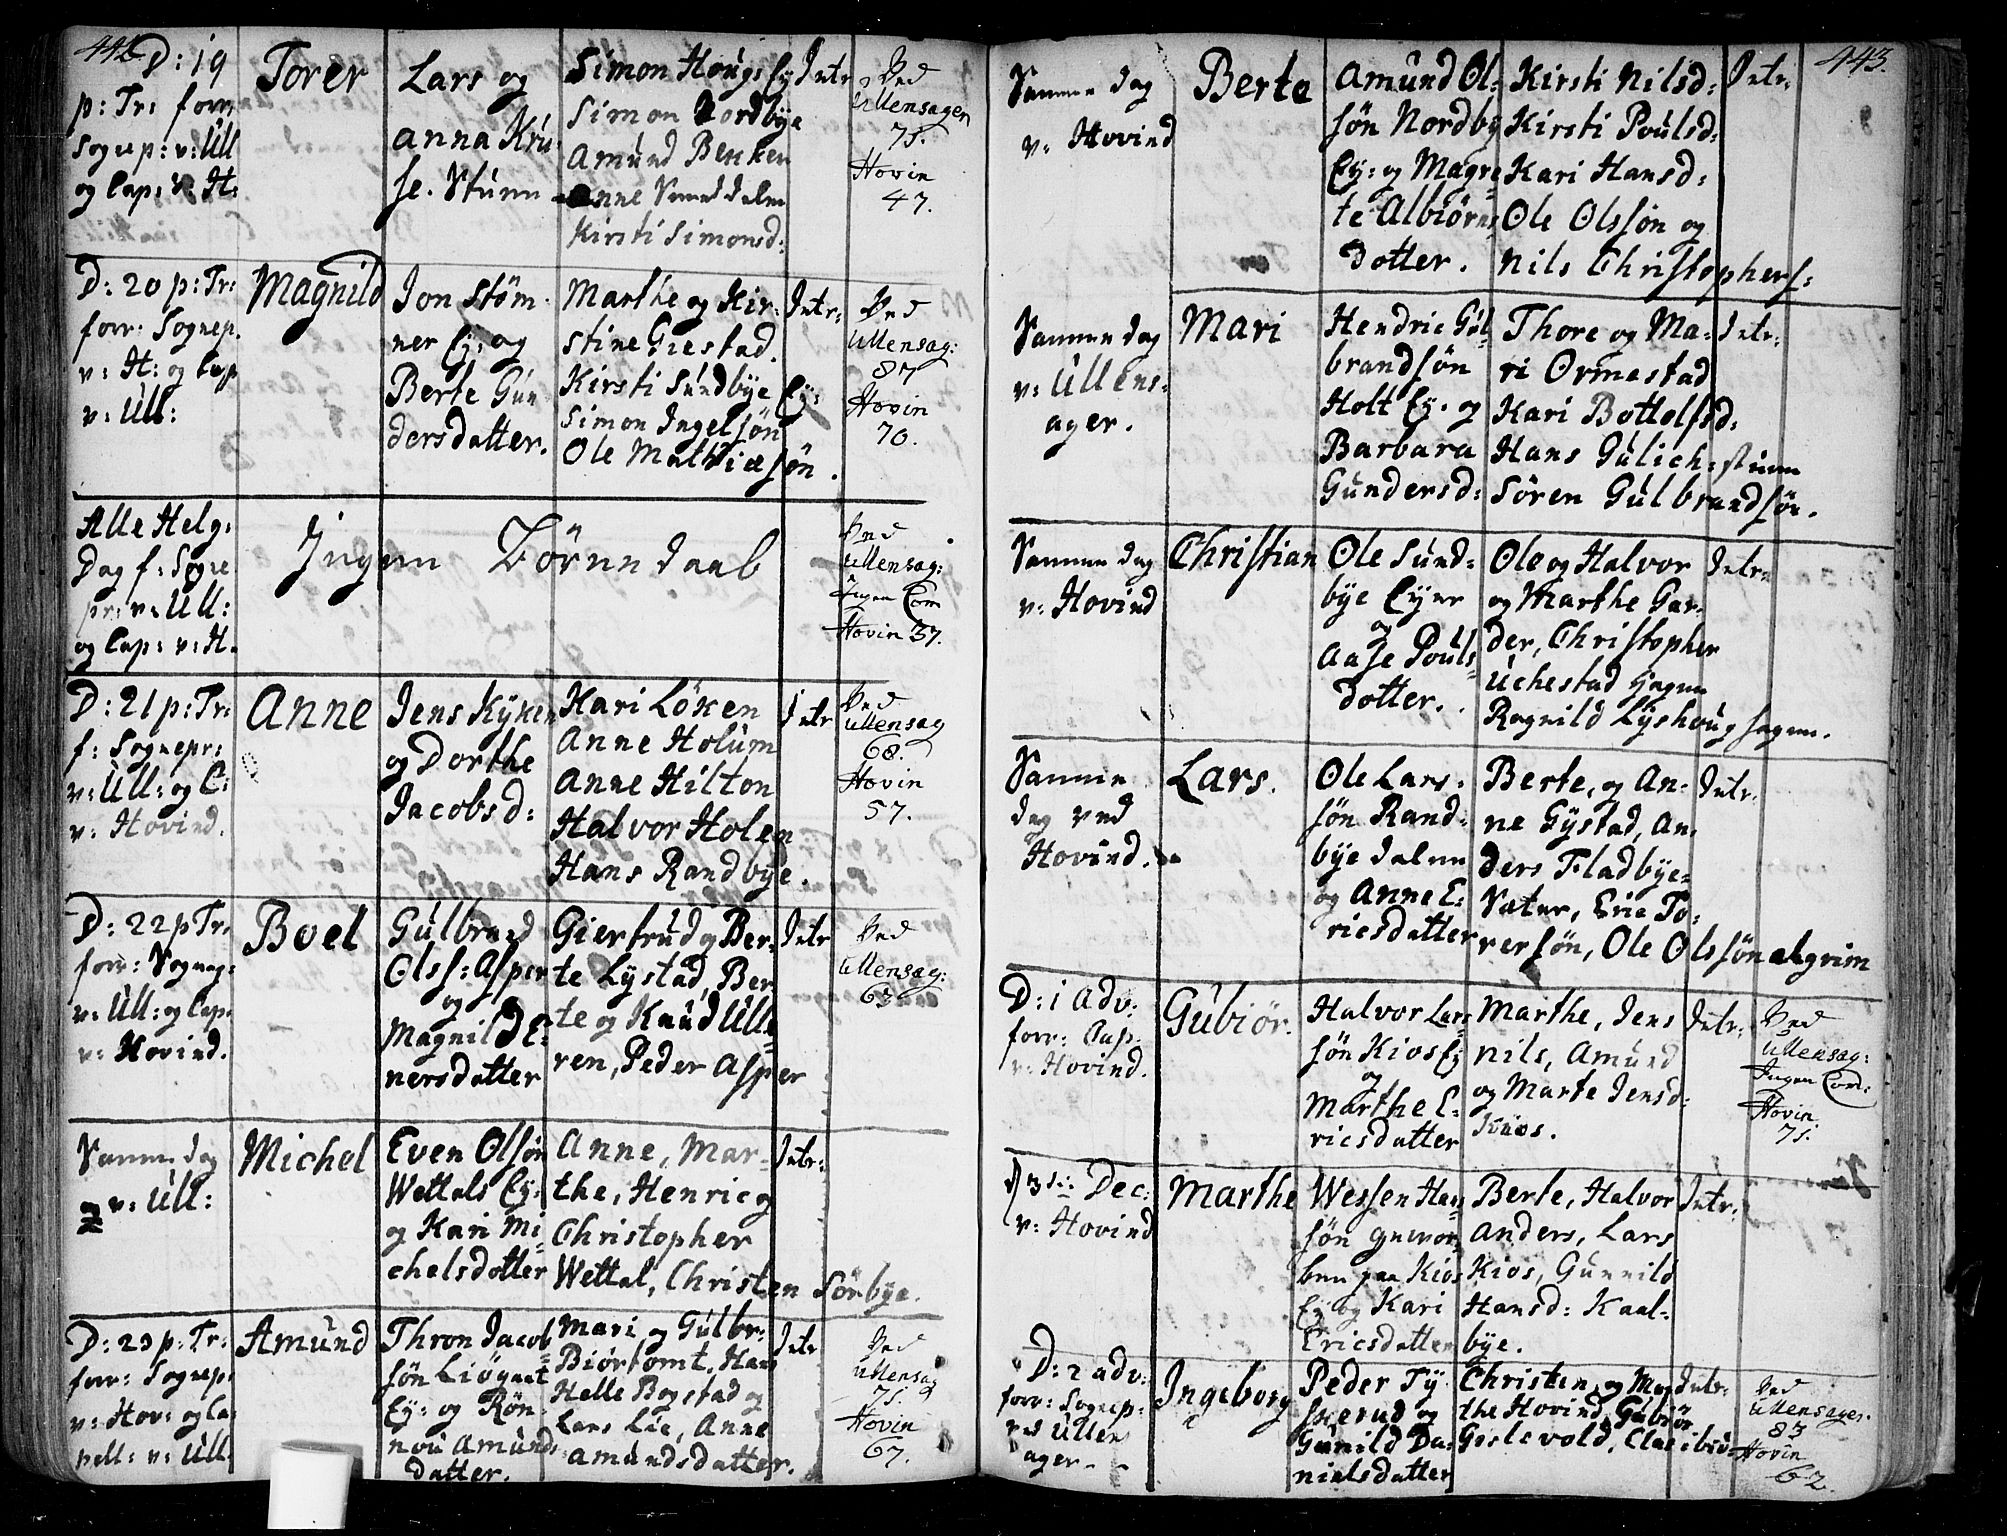 442
D: 19
p: Tr: forr:
Sognep: v: Ull
og Cap: v: H:
Torer
Lars og
Anna Kru-
se. Stuen
Simon Hougs Ey
Simon Nordbye
Amund Benken
Anne dalen
Kirsti Simonsd:
Intr
Ved
Ullensager
75.
Hovin
47.
D: 20 p: Tr:
forr: Sognep.
v: H: og Cap
v: Ull:
Magnild
Jon Stöm-
ner Ey: og
Berte Gun
dersdatter.
Marthe og Kir-
stine Giestad.
Kirsti Sundbye Ey:
Simon Ingelsön
Ole Mathiesön.
Intr:
Ved
Ullensag:
87
Hovin
70.
Alle Helg:
Dag f: Sogne
pr: v: Ull:
og Cap: v: H.
Ingen Börnedaab
Ved
Ullensag:
Ingen Com
Hovin 37.
D: 21 p: Tr:
f: Sognepr:
v: Ull: og C:
v: Hovind.
Anne
Jens Kÿken
og Dorthe
Jacobsd:
Kari Löken
Anne Holum
Anne Hilton
Halvor Holen
Hans Randbye.
Intr
Ved
Ullensag
68.
Hovin
57.
D: 22 p Tr:
forr: Sognep:
v: Ull: og Cap.
v: Hovind.
Boel
Gulbrand
Olss: Asper
og
Magnild E:
nersdatter
Giertrud og Ber-
te Lÿstad, Ber
te og Knud Ulle
ren, Peder Asper
Intr
Ved
Ullensag:
63
Samme dag
v: Ull:
Michel
Even Olsön
Wettals Ey:
og Kari Mi-
chelsdotter
Anne, Mar-
the, Henric og
Christopher
Wettal, Christen Sörbye.
Intr:
D: 23 p: Tr:
forr: Sognep.
v: Hov: og Ca:
pell: v: Ull.
Amund
Thron Jacob
sön Liögnet
Ey: og Rön-
nou Amunds
datter.
Mari og Gulbr:
Biörtomt, Hans
Helle Bogstad og
Lars Lie, Anne
Amundsdatter.
Intr
Ved
Ullensag
75.
Hovin
67.
443.
Samme dag
v: Hovind
Berte
Amund Ol-
sön Nordby
Ey: og Magre-
te Albiörns
dotter.
Kirsti Nilsd:
Kirsti Poulsd:
Kari Hansd:
Ole Olssön og
Nils Christophers:
Intr:
Samme dag
v: Ullens-
ager.
Mari
Hendric Gul-
brandsön
Holt Ey. og
Barbara
Gundersd:
Thore og Ma-
ri Ormestad
Kari Bottolfsd:
Hans Gulich: stuen
Sören Gulbrandsön.
Intr:
Samme dag
v: Hovind
Christian
Ole Sund-
bye Eyer
og
Aase Pouls-
dotter.
Ole og Halvor
og Marthe Gar-
der, Christopher
Uchestad
Ragnild Lÿshoug hagen.
Intr:
Samme
dag ved
Hovind.
Lars.
Ole Lars-
sön Rand-
bye dalen
og Anne E-
ricsdatter
Berte, og An-
ne Gÿstad, An-
ders Fladbye-
Sæter, Eric To-
rersön, Ole Olssön Algrim
Intr:
D: 1 Adv:
forr: Cap.
v: Hovind.
Gubiör.
Halvor Lars
sön Kios Ey
og
Marthe E-
ricsdatter
Marthe, Jens
Nils, Amund
og Marte Jensd:
Kios.
Intr:
Ved
Ullensag:
Ingen Com:
Hovin
71.
d 3 Dec:
v: Hovind
Marthe
Wessen Han
sön gnevor-
ben paa Kios
Ey og Kari
Ericsdatter
Berte, Halvor
Anders, Lars
Kios, Gunnild
Hansd: Kaal-
bye.
Intr:
D: 2 Adv:
forr: Sognep:
ved Ullen
ager.
Ingeborg
Peder Tÿ
skerud og
Gunild Da-
nielsdatter
Christen og Mar
the Hovind, Gubiör
Goslevold,
Intr:
Ved
Ullensager.
83
Hovin
62.